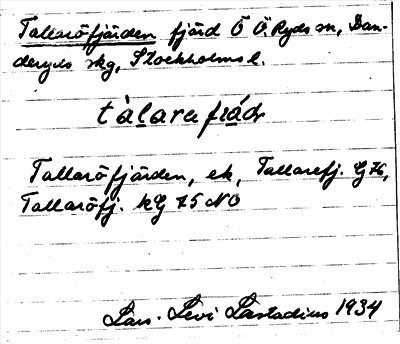 Tallaröfjärden fjärd Ö Ö. Ryds sn, Dan-
deryds skg, Stockholms l.
tàlarafiäd
Tallaröfjärden, ek, Tallarefj. G 76,
Tallaröfj. kG 75 NO
Lars-Levi Læstadius 1934